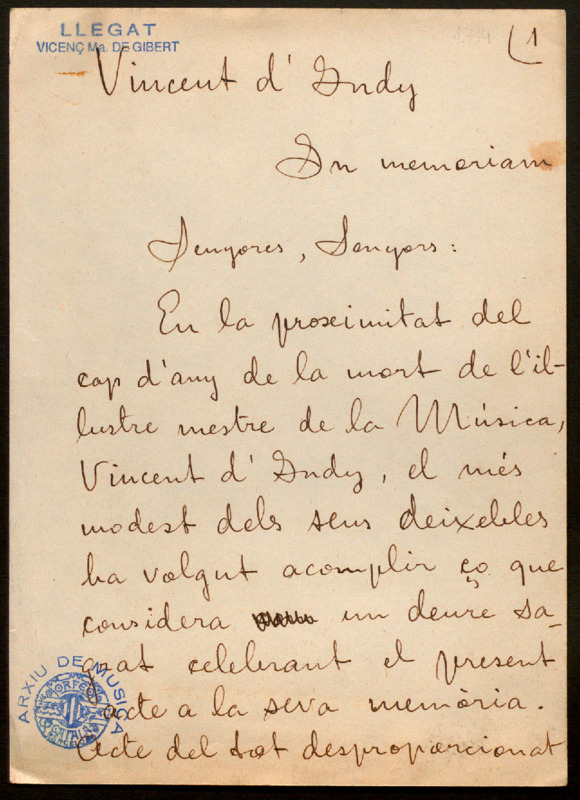 LLEGAT
VICENÇ Ma. DE GIBERT
1
Vincent d'Indy
In memoriam
Senyores, Senyors:
En la proximitat del
cap d'any de la mort de l'il-
lustre mestre de la Música,
Vincent d'Indy, el més
modest dels seus deixebles
ha volgut acomplir ço que
considera un deure sa-
grat celebrant el present
acte a la seva memòria.
Acte del tot desproporcionat
ARXIU DE MUSICA
ORFEO CATALA